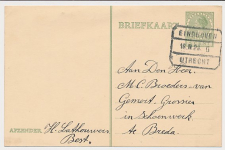 BRIEFKAART
EINDHOVEN
UTRECHT
Aan Den Heer
M.C. Broeders-van
Gemert. Grossier
in Schoenwerk
te Breda.
AFZENDER:
H. Lathouwers
Best.